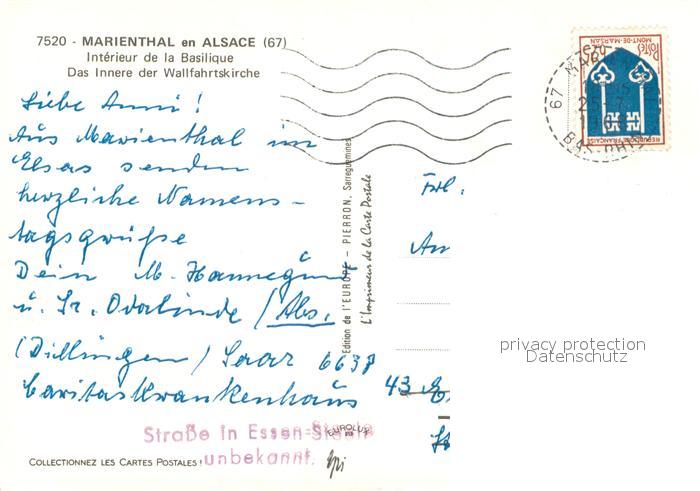 7520 - MARIENTHAL en ALSACE (67)
Intérieur de la Basilique
Das Innere der Wallfahrtskirche
Liebe Anni!
Aus Marienthal im
Elsas senden
herzliche Namens-
tagsgrüße
Dein M.
u. Sr. Odalinde / Abs.
(Dillingen / Saar 6638
Caritaskrankenhaus
Straße in Essen-
unbekannt.
COLLECTIONNEZ LES CARTES POSTALES!
EUROLUX
Edition de l'EUROPE - PIERRON, Sarreguemines
L'Imprimeur de la Carte Postale
Frl.
An
43
privacy protection
Datenschutz
POSTES
MONT-DE-MARSAN
REPUBLIQUE FRANCAISE
67
BAS-RHIN